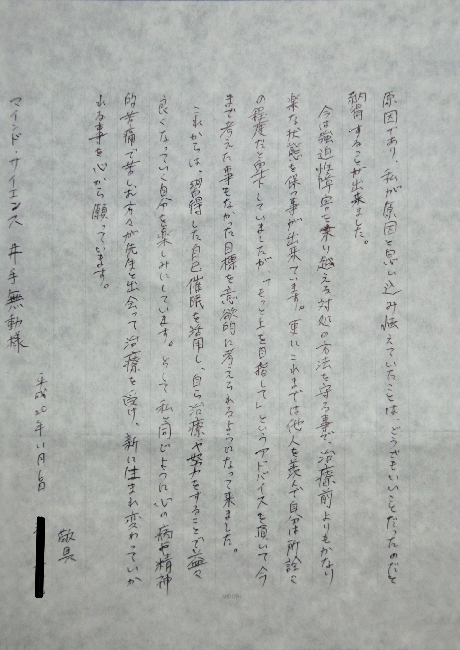 原因であり、私が原因と思い込み怯えていたことは、どうでもいいことだったのだと
納得することが出来ました。
今は強迫性障害を乗り越える対処の方法を守る事で、治療前よりもかなり
楽な状態を保つ事が出来ています。更にこれまでは他人を羨んで自分は所詮々
の程度だと卑下していましたが、「もっと上を目指して」というアドバイスを頂いて今
まで考えた事もなかった目標を意欲的に考えられるようになって来ました。
これからは、習得した自己催眠を活用し、自ら治療や努力をすることで益々
良くなっていく自分を楽しみにしています。そして私と同じように心の病や精神
的苦痛で苦しむ方々が先生と出会って治療を受け、新に生まれ変わっていか
れる事を心から願っています。
敬具
平成20年11月6日
マインド・サイエンス 井手無動様